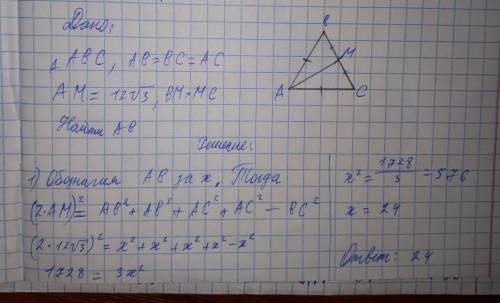 Дано:
△ ABC, AB=BC=AC
AM = 12√3, BM=MC
Найти AB
B
M
A
C
Решение:
1) Обозначим AB за x, Тогда
(2·AM)² = AB² + AB² + AC² + AC² − BC²
(2·12√3)² = x² + x² + x² + x² − x²
1728 = 3x²
x² = 1728/3 = 576
x = 24
Ответ: 24